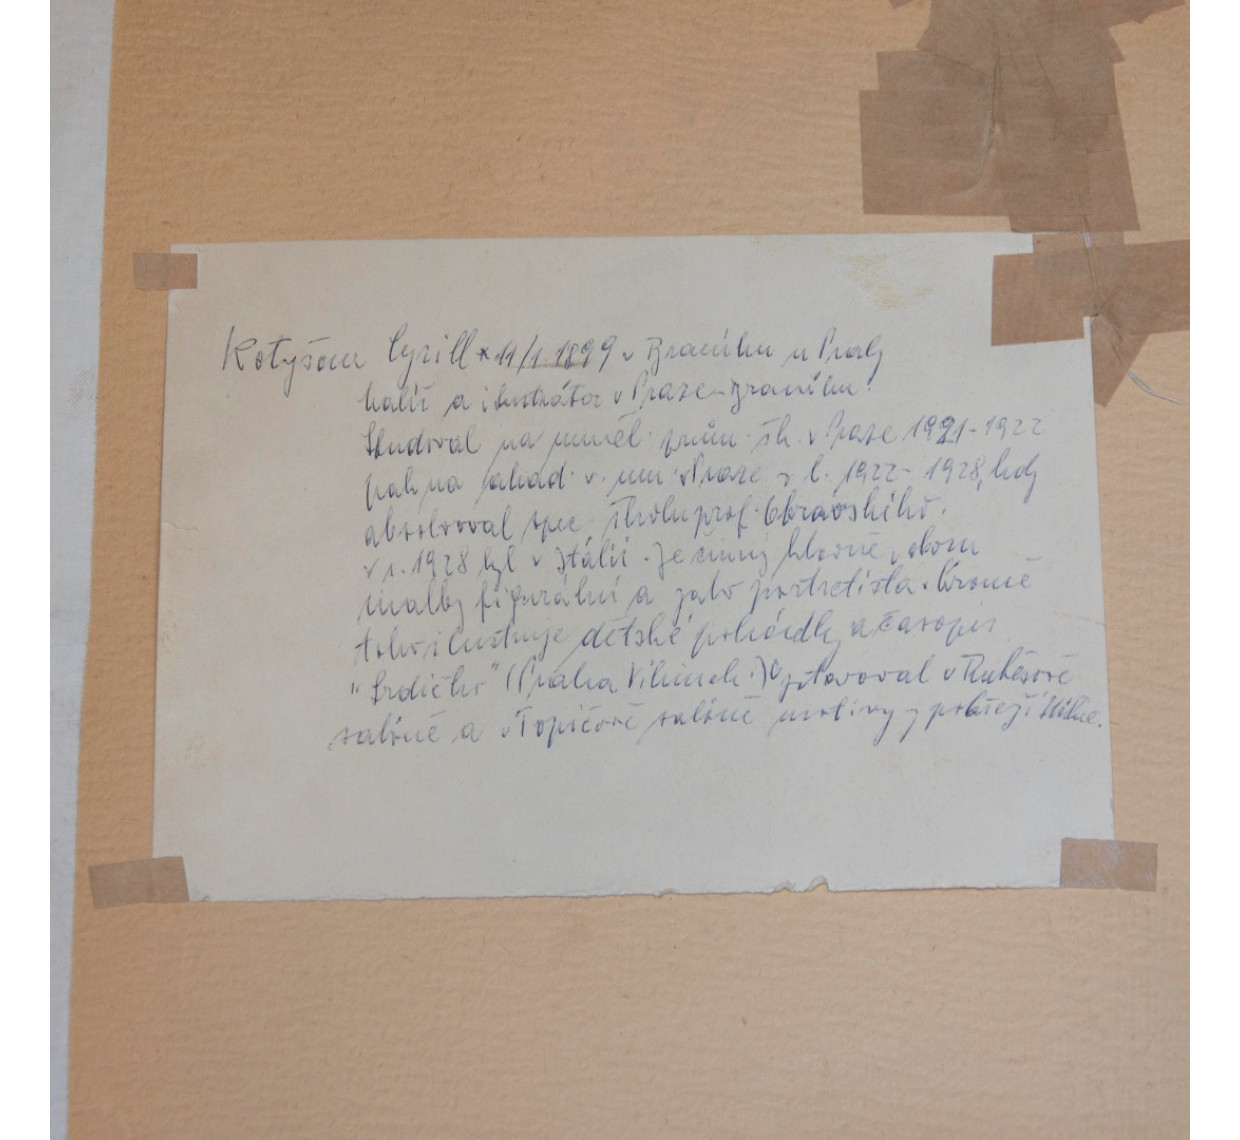 Kotyšan Cyrill * 11/1. 1899 v Braníku u Prahy
malíř a ilustrátor v Praze-Braníku.
Studoval na uměl. prům. šk. v Praze 1921-1922
pak na akad. v. um. v Praze v l. 1922-1928, kdy
absolvoval spec. školu prof. Obrovského.
v r. 1928 byl v Itálii. Je činný hlavně v oboru
malby figurální a jako portretista. Kromě
toho ilustruje dětské pohádky a časopis
"Srdíčko" (Praha Vilímek.) vystavoval v Rubešově
salóně a v Topičově salóně motivy z pobřeží